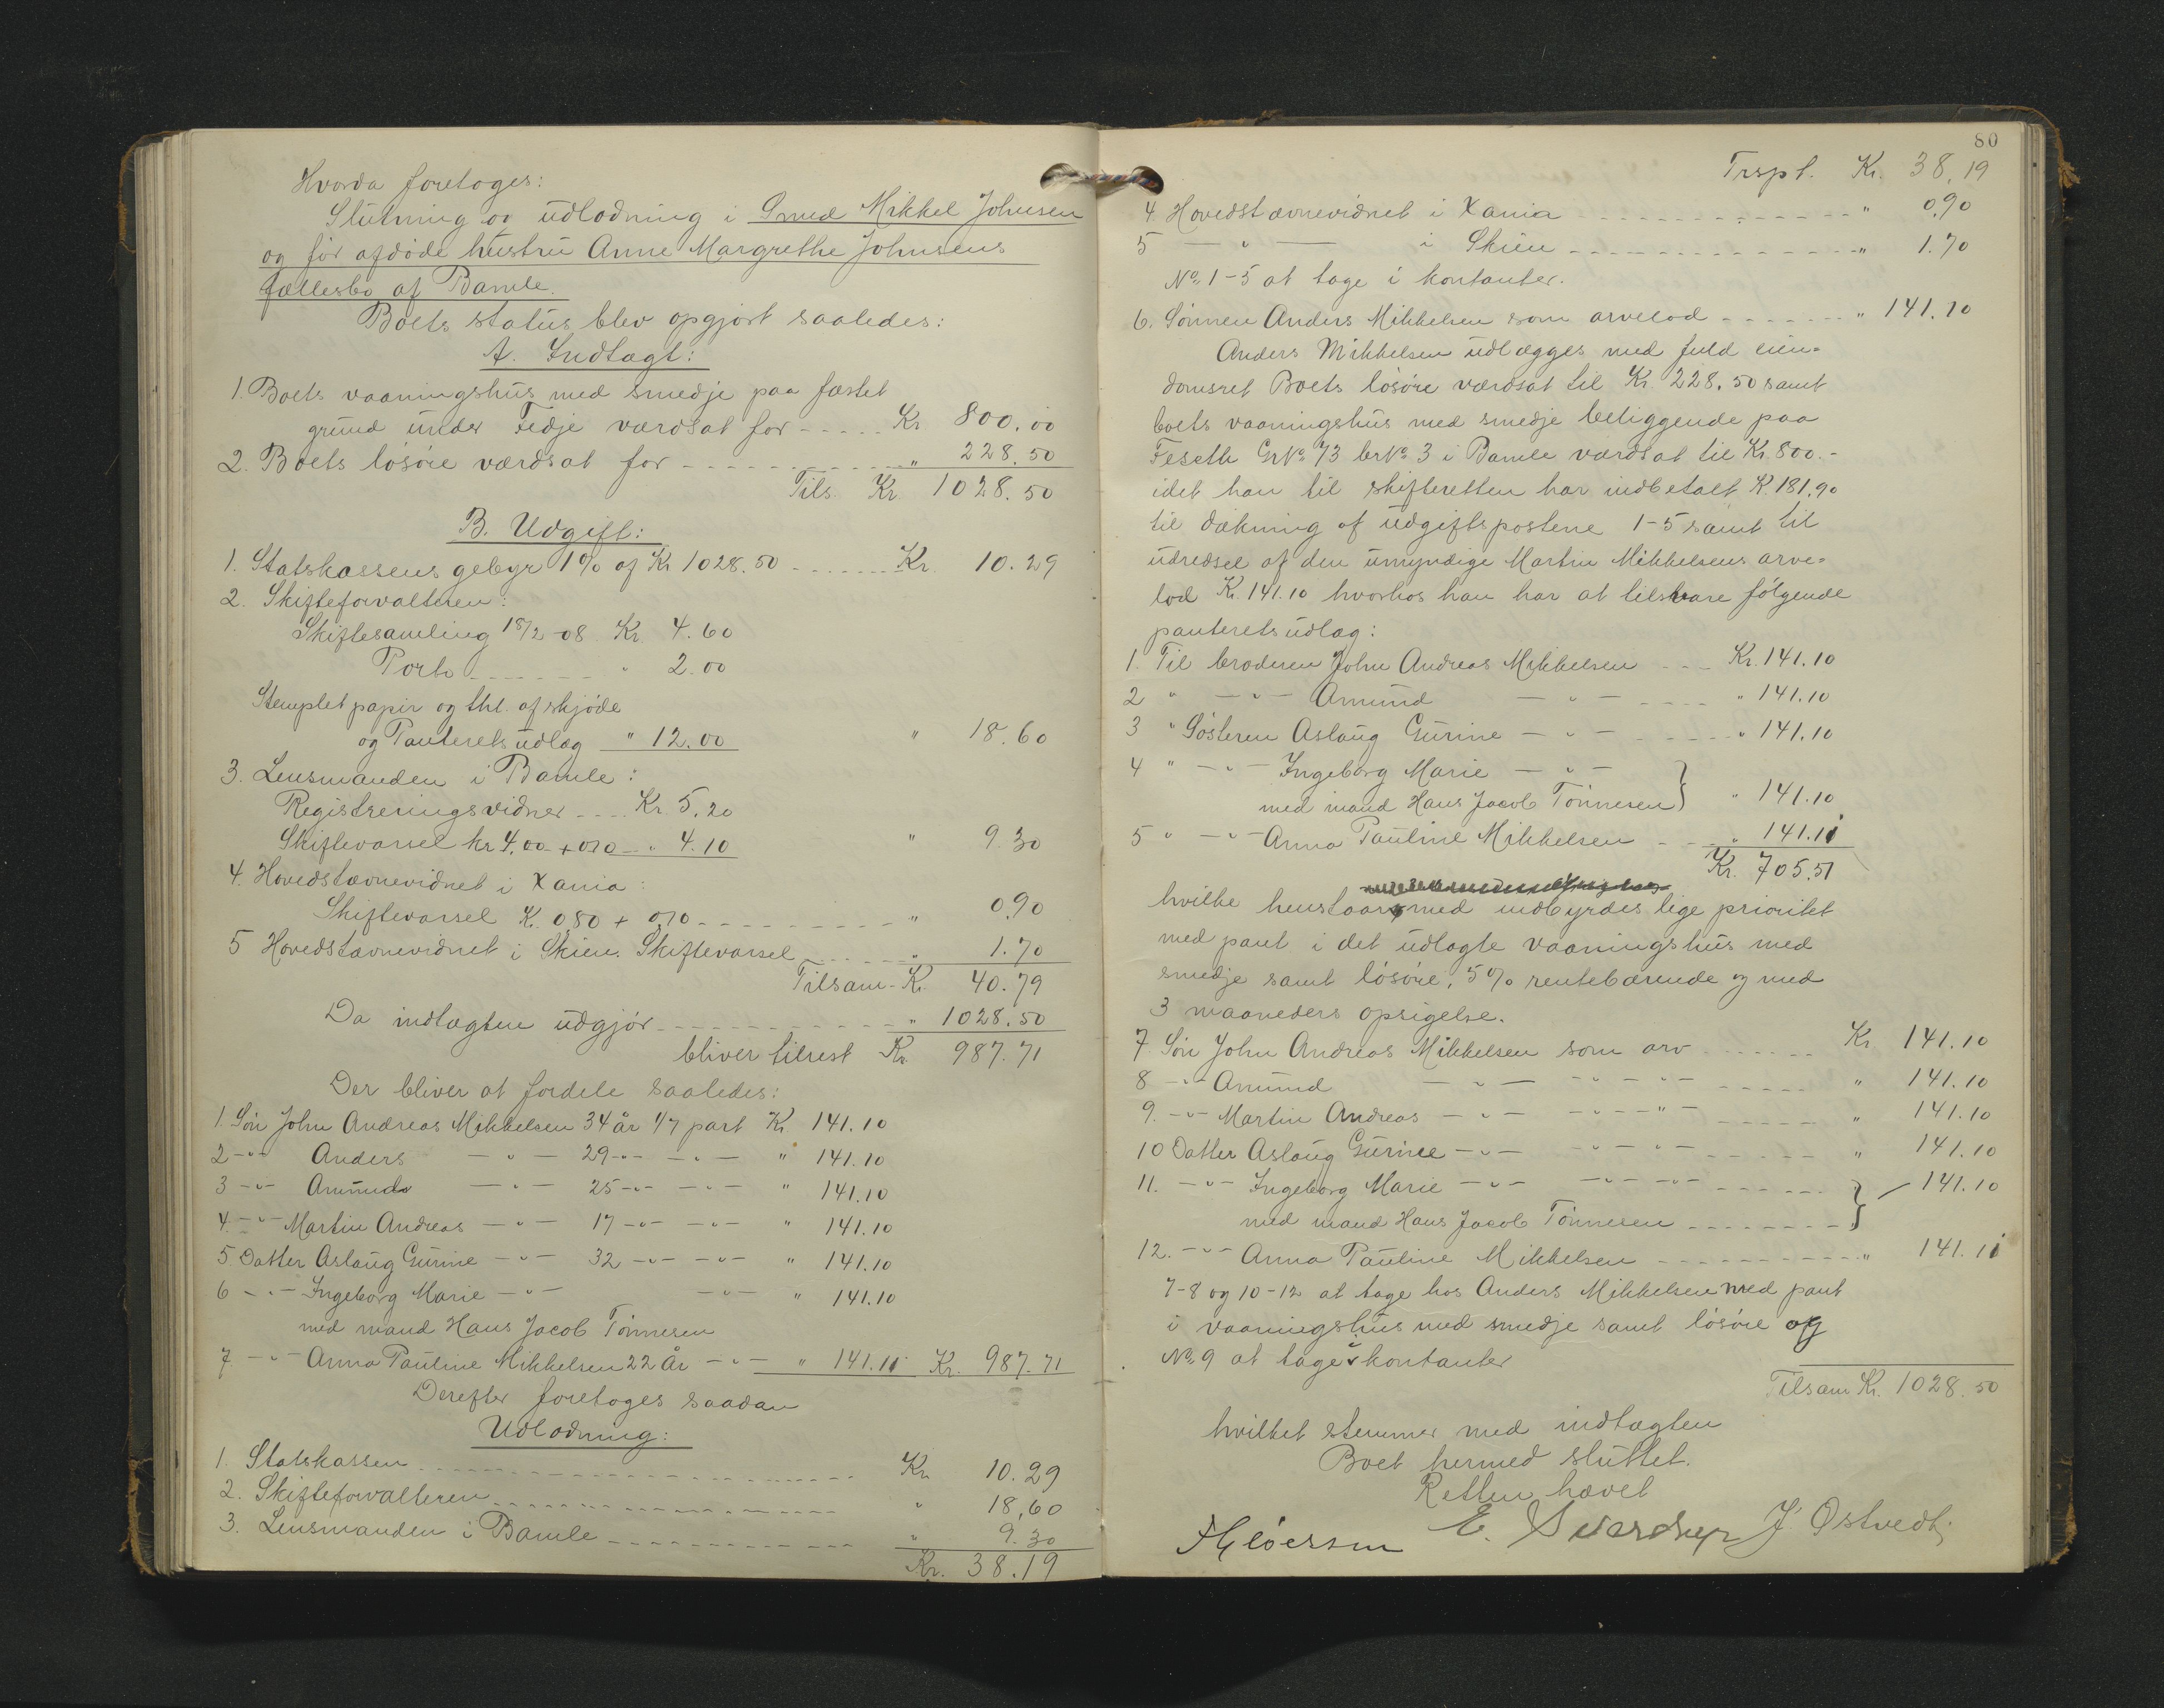 Hvorda foretoges:
Slutning og udlodning i Smed Mikkel Johnsen
og før afdøde hustru Anne Margrethe Johnsens
fællesbo af Bamle.
Boets status blev opgjort saaledes:
A. Indtægt:
1. Boets vaaningshus med smedje paa fæstet
grund under Fedje værdsat for ----- Kr 800.00
2. Boets løsøre værdsat for ---------- " 228.50
Tils. Kr 1028.50
B. Udgift:
1. Statskassens gebyr 1% af Kr 1028.50 ------- Kr. 10.29
2. Skifteforvalteren:
Skiftesamling 18/2-08 Kr. 4.60
Porto ------ " 2.00
Stemplet papir og thl. af skjøde
og Panteretsudlæg " 12.00 " 18.60
3. Lensmanden i Bamle:
Registreringsvidner ---- Kr 5.20
Skiftevarsel kr 4.00 + 010 -- " 4.10 " 9.30
4. Hovedstævnevidnet i Xania:
Skiftevarsel K. 0,80 + 0,10 --------- " 0.90
5 Hovedstævnevidnet i Skien. Skiftevarsel ------ " 1.70
Tilsam. Kr. 40.79
Da indtægten udgjør ----------- " 1028.50
bliver tilrest Kr. 987.71
Der bliver at fordele saaledes:
1. Søn John Andreas Mikkelsen 34 år 1/7 part Kr 141.10
2 -"- Anders -"- 29 -"- -"- " 141.10
3 -"- Amund -"- 25 -"- -"- " 141.10
4. -"- Martin Andreas -"- 17 -"- -"- " 141.10
5 Datter Aslaug Gurine -"- 32 -"- -"- " 141.10
6 -"- Ingeborg Marie -"- -"- " 141.10
med mand Hans Jacob Tønnesen
7. -"- Anna Pauline Mikkelsen 22 år -"- " 141.11 Kr. 987.71
Derefter foretoges saadan
Udlodning:
1. Statskassen ------------------ Kr 10.29
2. Skifteforvalteren ---------------- " 18,60
3. Lensmanden i Bamle ------------ " 9.30
Kr. 38.19
80
Trspt. Kr. 38.19
4. Hovedstævnevidnet i Xania ------------ " 0.90
5 -"- i Skien ------------ " 1.70
No. 1-5 at tage i kontanter.
6. Sønnen Anders Mikkelsen som arvelod ------ " 141.10
Anders Mikkelsen udlægges med fuld eien-
domsret Boets løsøre værdsat til Kr. 228.50 samt
boets vaaningshus med smedje beliggende paa
Feseth GrNo. 73 brNo. 3 i Bamle værdsat til Kr. 800.-
idet han til skifteretten har indbetalt K. 181.90
til dækning af udgiftspostene 1-5 samt til
udredsel af den umyndige Martin Mikkelsens arve-
lod Kr. 141.10 hvorhos han har at tilsvare følgende
panteretsudlæg:
1. Til broderen John Andreas Mikkelsen --- Kr. 141.10
2 " -"- Amund -"- ---- " 141.10
3 " Søsteren Aslaug Gurine -"- ----- " 141.10
4 " -"- Ingeborg Marie -"- }
med mand Hans Jacob Tønnesen } " 141.10
5 " -"- Anna Pauline Mikkelsen --- " 141.11
Kr. 705.51
hvilke henstaar med indbyrdes lige prioritet
med pant i det udlagte vaaningshus med
smedje samt løsøre, 5% rentebærende og med
3 maaneders opsigelse.
7. Søn John Andreas Mikkelsen som arv ------ Kr 141.10
8 -"- Amund -"- -"- -"- ------ " 141.10
9. -"- Martin Andreas -"- -"- -"- ----- " 141.10
10 Datter Aslaug Gurine -"- -"- -"- ------ " 141.10
11. -"- Ingeborg Marie -"- -"- -"- ------ } 141.10
med mand Hans Jacob Tønnesen -------- }
12. -"- Anna Pauline Mikkelsen ---------- " 141.11
7-8 og 10-12 at tage hos Anders Mikkelsen med pant
i vaaningshus med smedje samt løsøre og
No. 9 at tage i kontanter
Tilsam Kr. 1028.50
hvilket stemmer med indtægten
Boet hermed sluttet.
Retten hævet
E. Sverdrup J. Østvedt